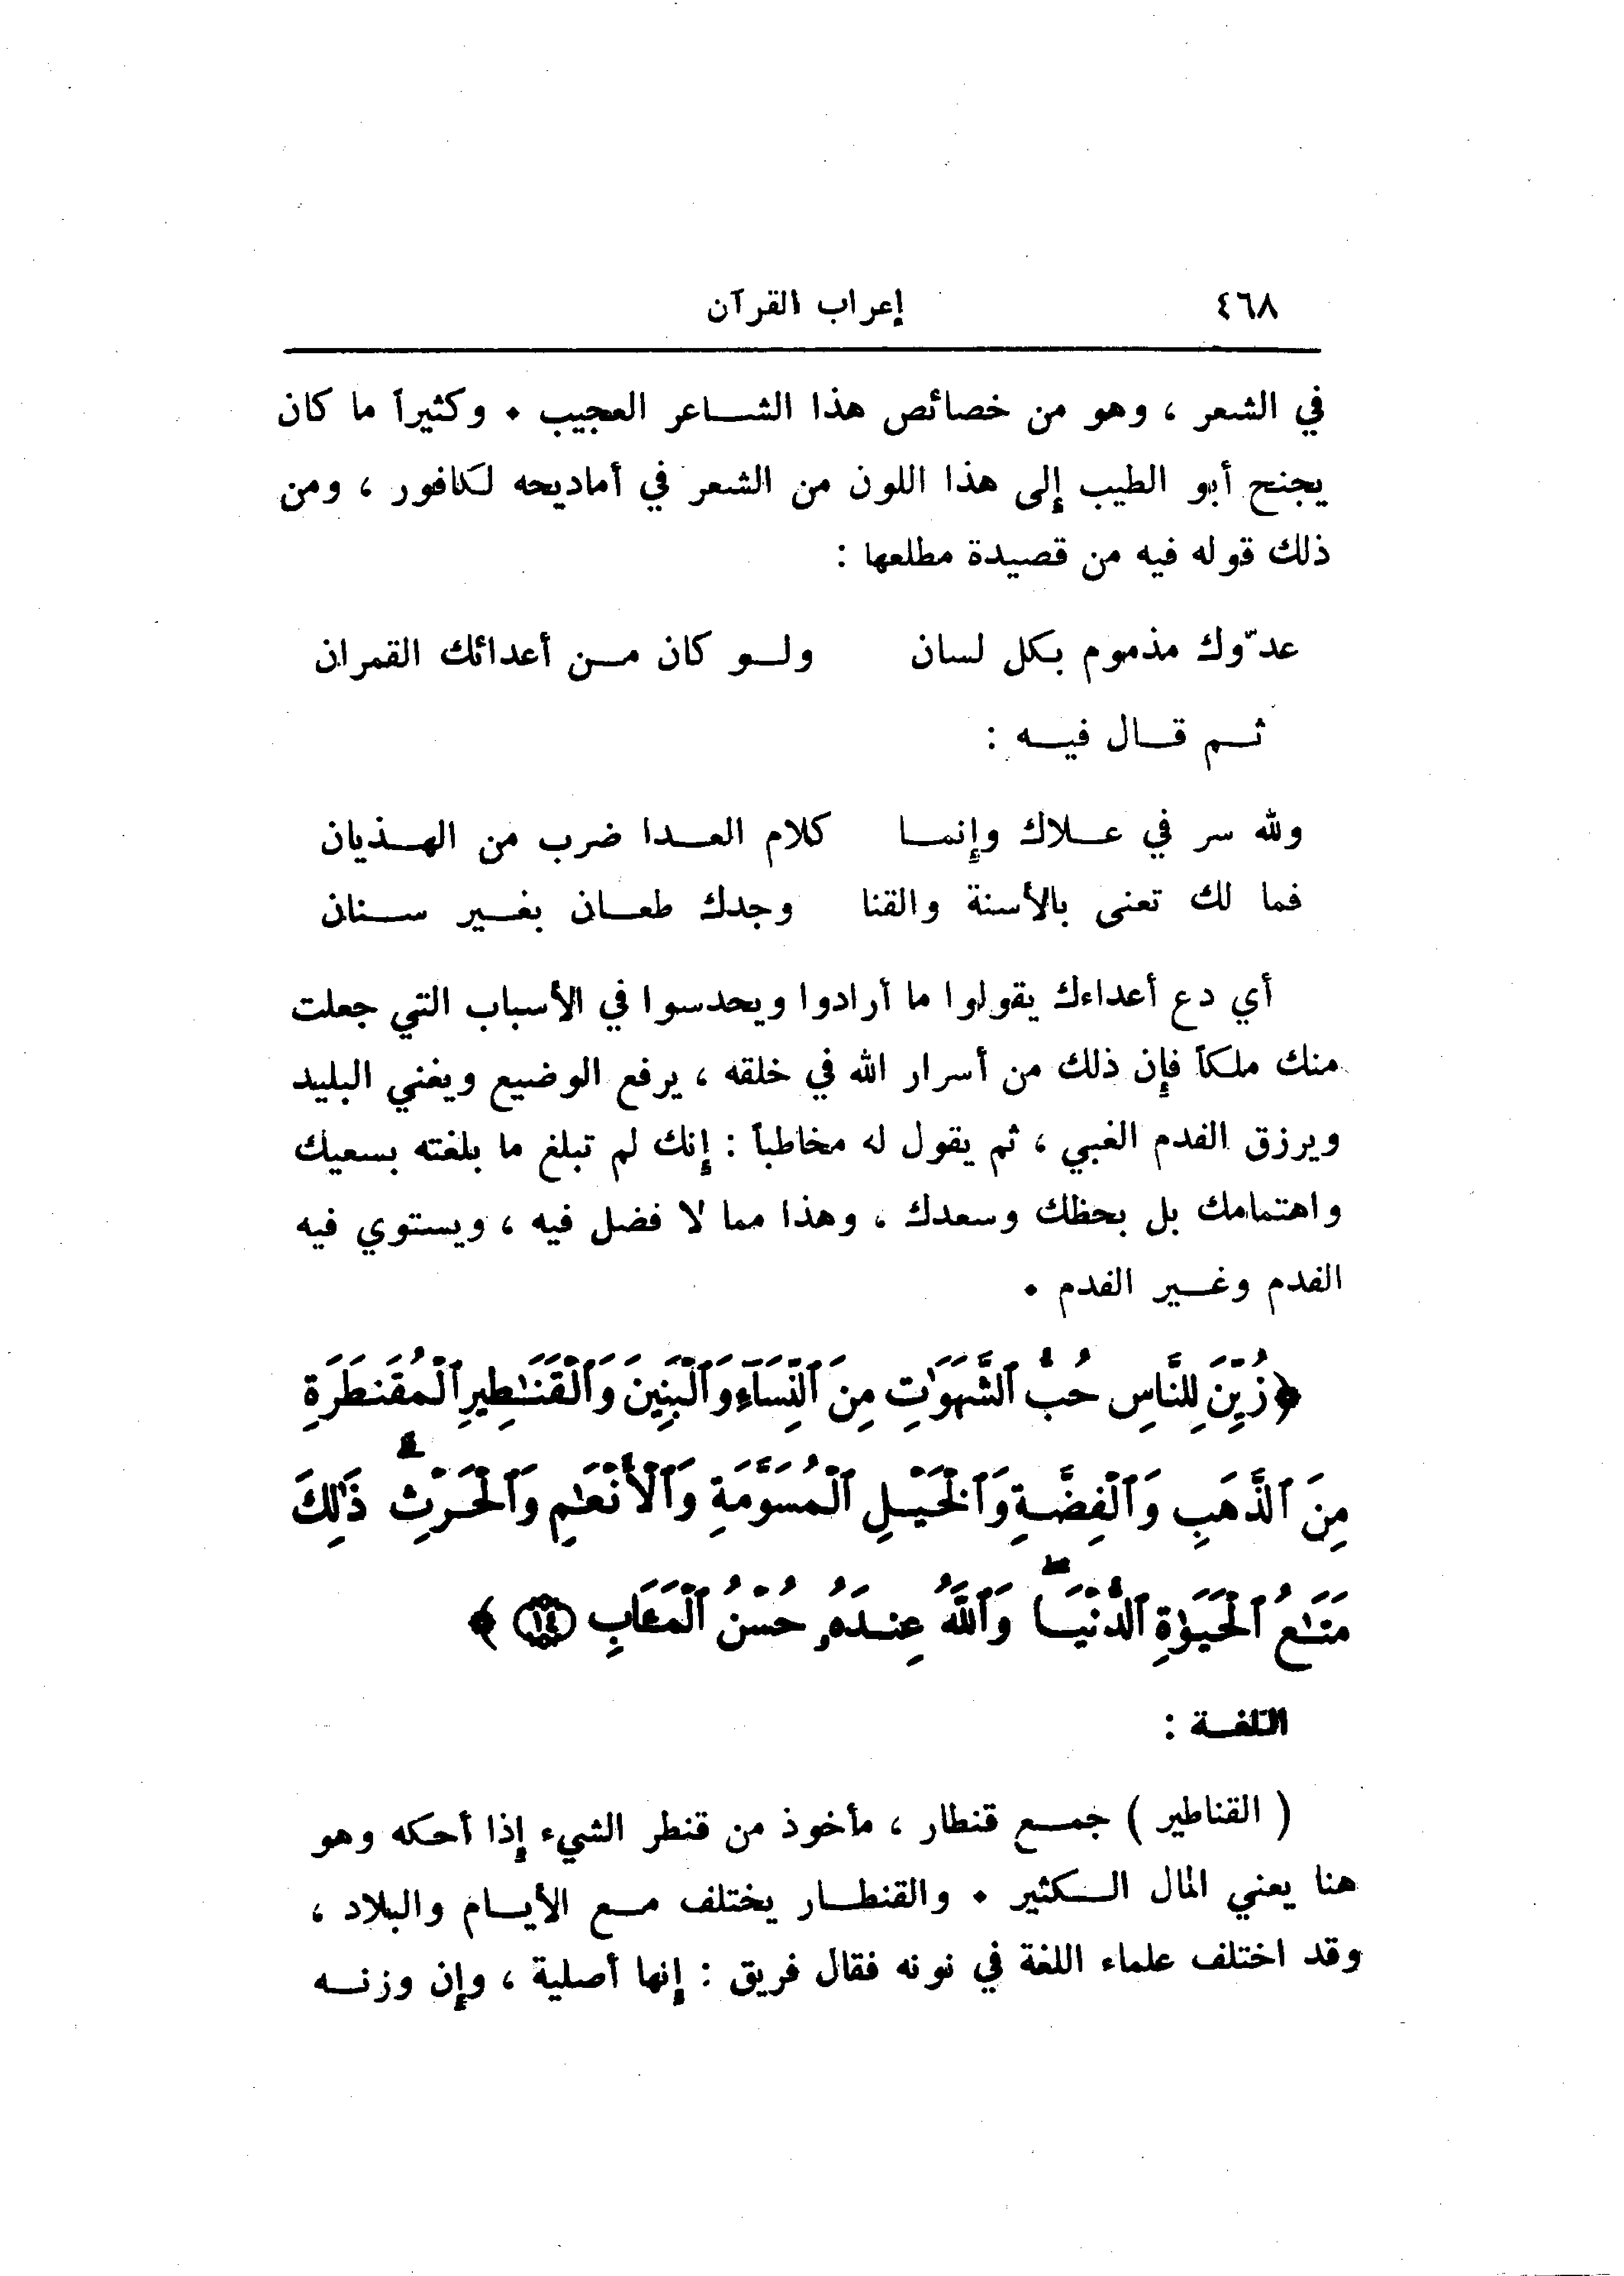 ٤٦٨ إعراب القرآن
في الشعر ، وهو من خصائص هذا الشاعر العجيب . وكثيراً ما كان
يجنح أبو الطيب إلى هذا اللون من الشعر في أماديحه لكافور ، ومن
ذلك قوله فيه من قصيدة مطلعها :
عدّوك مذموم بكل لسان ولو كان من أعدائك القمران
ثم قال فيه :
ولله سر في علاك وإنما كلام العدا ضرب من الهذيان
فما لك تعنى بالأسنة والقنا وجدك طعان بغير سنان
أي دع أعداءك يقولوا ما أرادوا ويحدسوا في الأسباب التي جعلت
منك ملكاً فإن ذلك من أسرار الله في خلقه ، يرفع الوضيع ويغني البليد
ويرزق الفدم الغبي ، ثم يقول له مخاطباً : إنك لم تبلغ ما بلغته بسعيك
واهتمامك بل بحظك وسعدك ، وهذا مما لا فضل فيه ، ويستوي فيه
الفدم وغير الفدم .
﴿ زُيِّنَ لِلنَّاسِ حُبُّ ٱلشَّهَوَٰتِ مِنَ ٱلنِّسَآءِ وَٱلْبَنِينَ وَٱلْقَنَـٰطِيرِ ٱلْمُقَنطَرَةِ
مِنَ ٱلذَّهَبِ وَٱلْفِضَّةِ وَٱلْخَيْلِ ٱلْمُسَوَّمَةِ وَٱلْأَنْعَـٰمِ وَٱلْحَرْثِ ۗ ذَٰلِكَ
مَتَـٰعُ ٱلْحَيَوٰةِ ٱلدُّنْيَا ۖ وَٱللَّهُ عِندَهُۥ حُسْنُ ٱلْمَـَٔابِ ١٤ ﴾
اللغة :
( القناطير ) جمع قنطار ، مأخوذ من قنطر الشيء إذا أحكه وهو
هنا يعني المال الكثير . والقنطار يختلف مع الأيام والبلاد ،
وقد اختلف علماء اللغة في نونه فقال فريق : إنها أصلية ، وإن وزنه